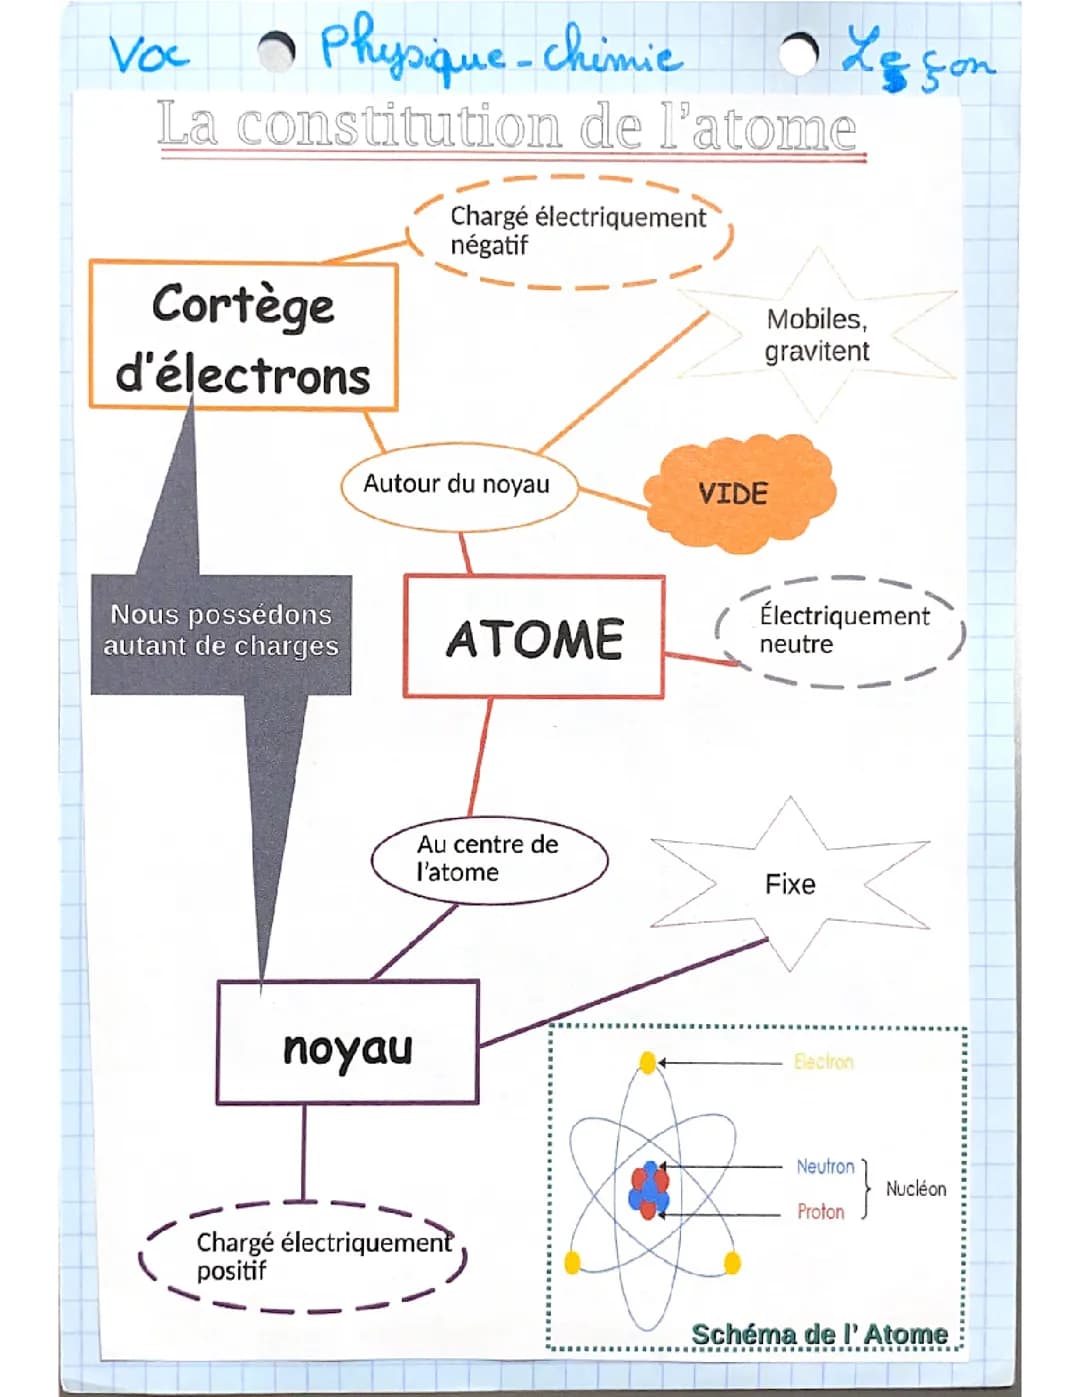 Voc Physique-chimie Leçon
La constitution de l'atome
Chargé électriquement
négatif
Cortège
d'électrons
Mobiles,
gravitent
Autour du noyau
VIDE
Nous possédons
autant de charges
ATOME
Électriquement
neutre
Au centre de
l'atome
Fixe
noyau
Electron
Neutron
Nucléon
Proton
Chargé électriquement
positif
Schéma de l' Atome